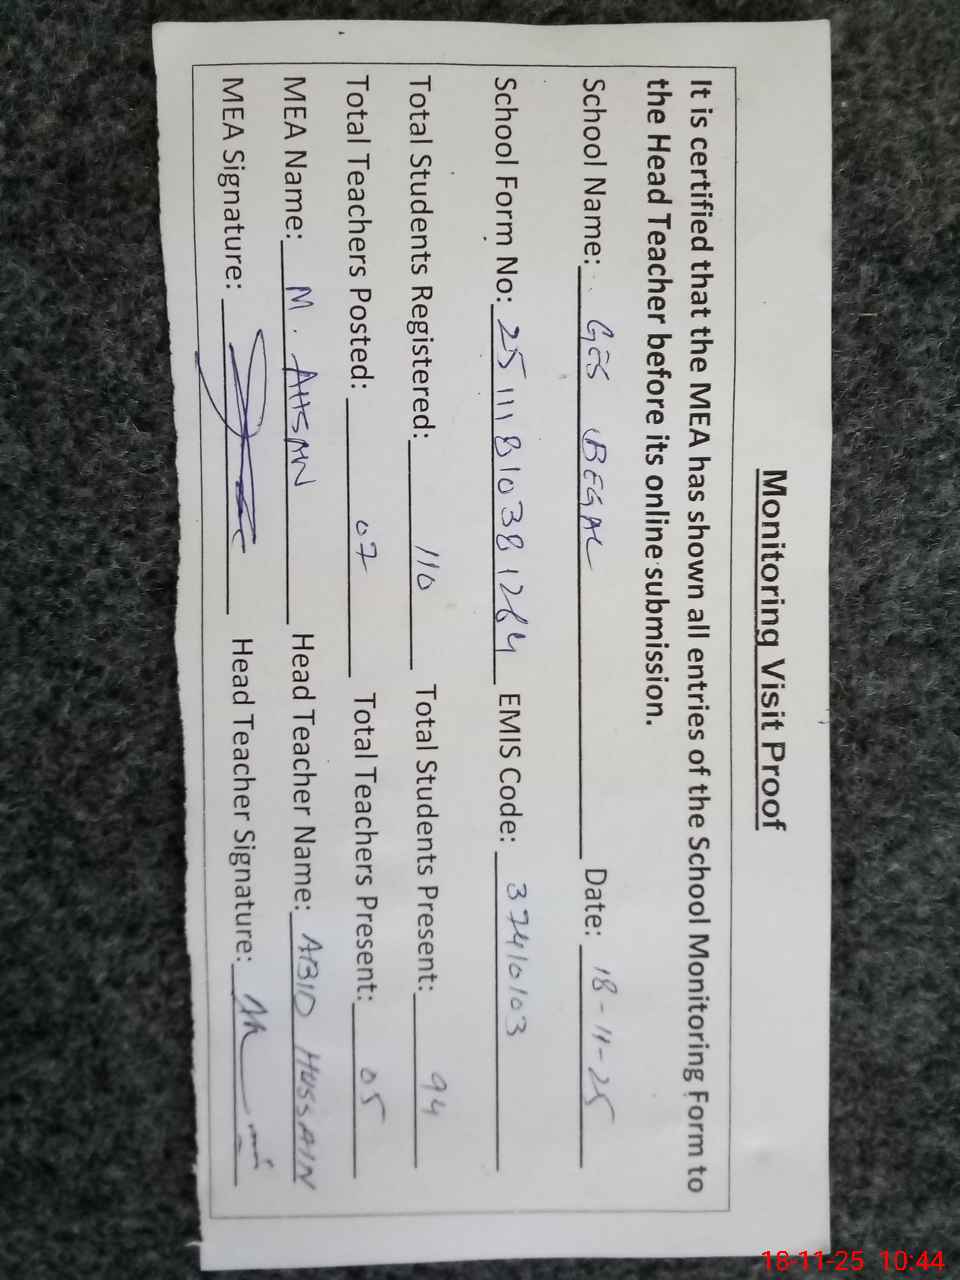 Monitoring Visit Proof
It is certified that the MEA has shown all entries of the School Monitoring Form to
the Head Teacher before its online submission.
School Name: GES BEGAL Date: 18-11-25
School Form No: 25111810381264 EMIS Code: 37410103
Total Students Registered: 110 Total Students Present: 94
Total Teachers Posted: 07 Total Teachers Present: 05
MEA Name: M. AHSAN Head Teacher Name: ABID HUSSAIN
MEA Signature: Head Teacher Signature:
18-11-25 10:44